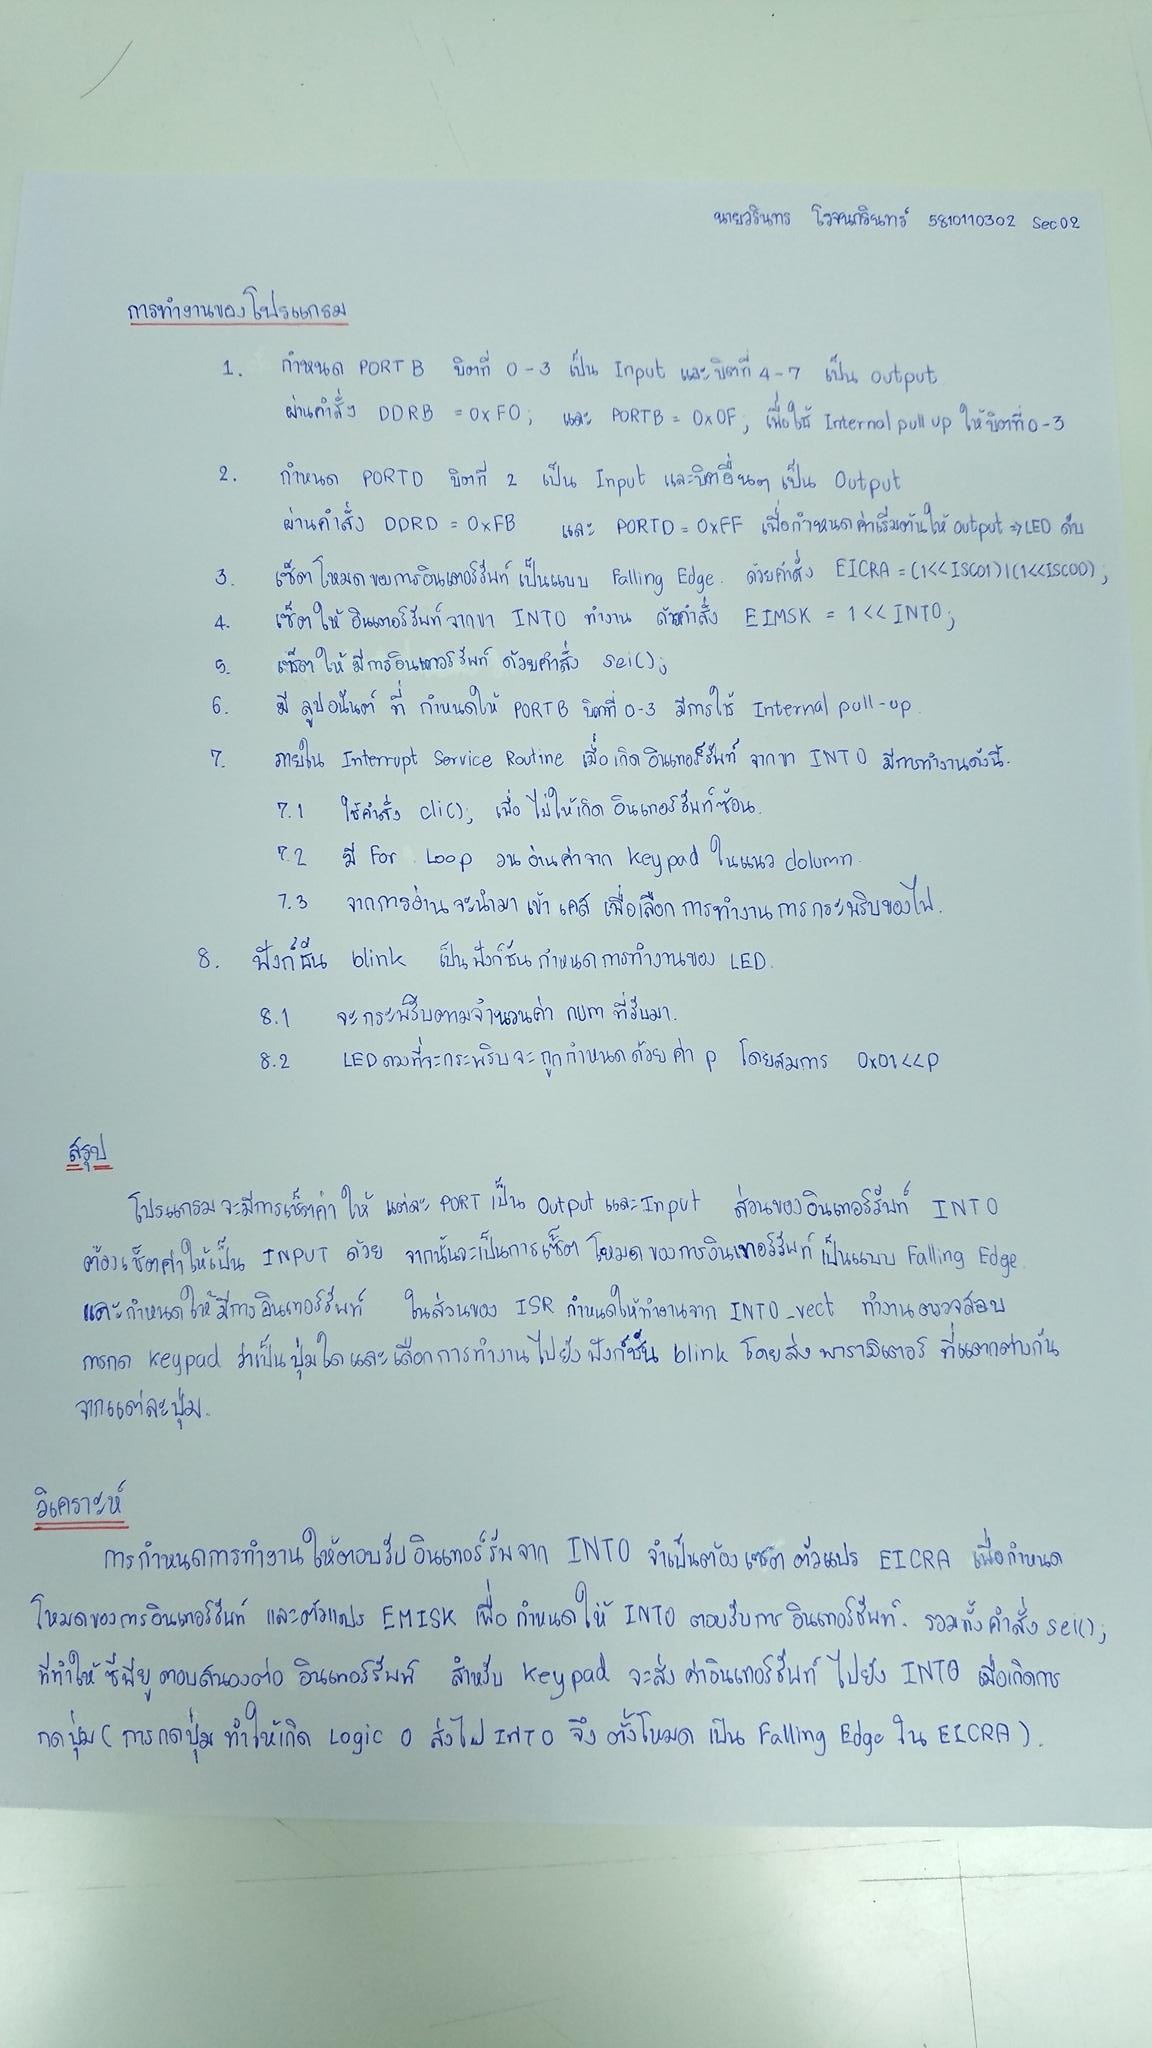 นายวรินทร โรจนภรินทร์ 5810110302 Sec 02
การทำงานของโปรแกรม
1. กำหนด PORT B บิตที่ 0-3 เป็น Input และบิตที่ 4-7 เป็น output
ผ่านคำสั่ง DDRB = 0xF0; และ PORTB = 0x0F; เพื่อใช้ Internal pull up ให้บิตที่ 0-3
2. กำหนด PORTD บิตที่ 2 เป็น Input และบิตอื่นๆ เป็น Output
ผ่านคำสั่ง DDRD = 0xFB และ PORTD = 0xFF เพื่อกำหนดค่าเริ่มต้นให้ output ⇒ LED ดับ
3. เซ็ตโหมดของการอินเตอร์รัพท์เป็นแบบ Falling Edge. ด้วยคำสั่ง EICRA = (1<<ISC01)|(1<<ISC00);
4. เซ็ตให้ อินเตอร์รัพท์จากขา INT0 ทำงาน ด้วยคำสั่ง EIMSK = 1<<INT0;
5. เซ็ตให้ มีการอินเทอร์รัพท์ ด้วยคำสั่ง sei();
6. มี ลูปอนันต์ ที่ กำหนดให้ PORTB บิตที่ 0-3 มีการใช้ Internal pull-up.
7. ภายใน Interrupt Service Routine เมื่อเกิดอินเทอร์รัพท์ จากขา INT0 มีการทำงานดังนี้.
7.1 ใช้คำสั่ง cli(); เพื่อ ไม่ให้เกิด อินเตอร์รัพท์ซ้อน.
7.2 มี For Loop วนอ่านค่าจาก keypad ในแนว column.
7.3 จากการอ่าน จะนำมา เข้า เคส เพื่อเลือก การทำงาน การกระพริบของไฟ.
8. ฟังก์ชัน blink เป็นฟังก์ชันกำหนดการทำงานของ LED.
8.1 จะกระพริบตามจำนวนค่า num ที่รับมา.
8.2 LED ดวงที่จะกระพริบจะถูกกำหนดด้วย ค่า p โดยสมการ 0x01<<p
สรุป
โปรแกรมจะมีการเซ็ตค่าให้ แต่ละ PORT เป็น Output และ Input ส่วนของอินเตอร์รัพท์ INT0
ต้องเซ็ตค่าให้เป็น INPUT ด้วย จากนั้นจะเป็นการเซ็ต โหมดของการอินเทอร์รัพท์ เป็นแบบ Falling Edge.
และกำหนดให้มีการอินเทอร์รัพท์ ในส่วนของ ISR กำหนดให้ทำงานจาก INT0_vect ทำงานตรวจสอบ
การกด keypad ว่าเป็นปุ่มใด และเลือกการทำงานไปยังฟังก์ชัน blink โดยส่งพารามิเตอร์ ที่แตกต่างกัน
จากแต่ละปุ่ม.
วิเคราะห์
การกำหนดการทำงานให้ตอบรับอินเทอร์รัพจาก INT0 จำเป็นต้องเซ็ต ตัวแปร EICRA เพื่อกำหนด
โหมดของการอินเตอร์รัพท์ และตัวแปร EMISK เพื่อ กำหนดให้ INT0 ตอบรับการ อินเตอร์รัพท์. รวมทั้งคำสั่ง sei();
ที่ทำให้ ซีพียู ตอบสนองต่อ อินเตอร์รัพท์ สำหรับ keypad จะส่ง ค่าอินเตอร์รัพท์ ไปยัง INT0 เมื่อเกิดการ
กดปุ่ม ( การกดปุ่ม ทำให้เกิด Logic 0 ส่งไป INT0 จึง ตั้งโหมด เป็น Falling Edge ใน EICRA ).